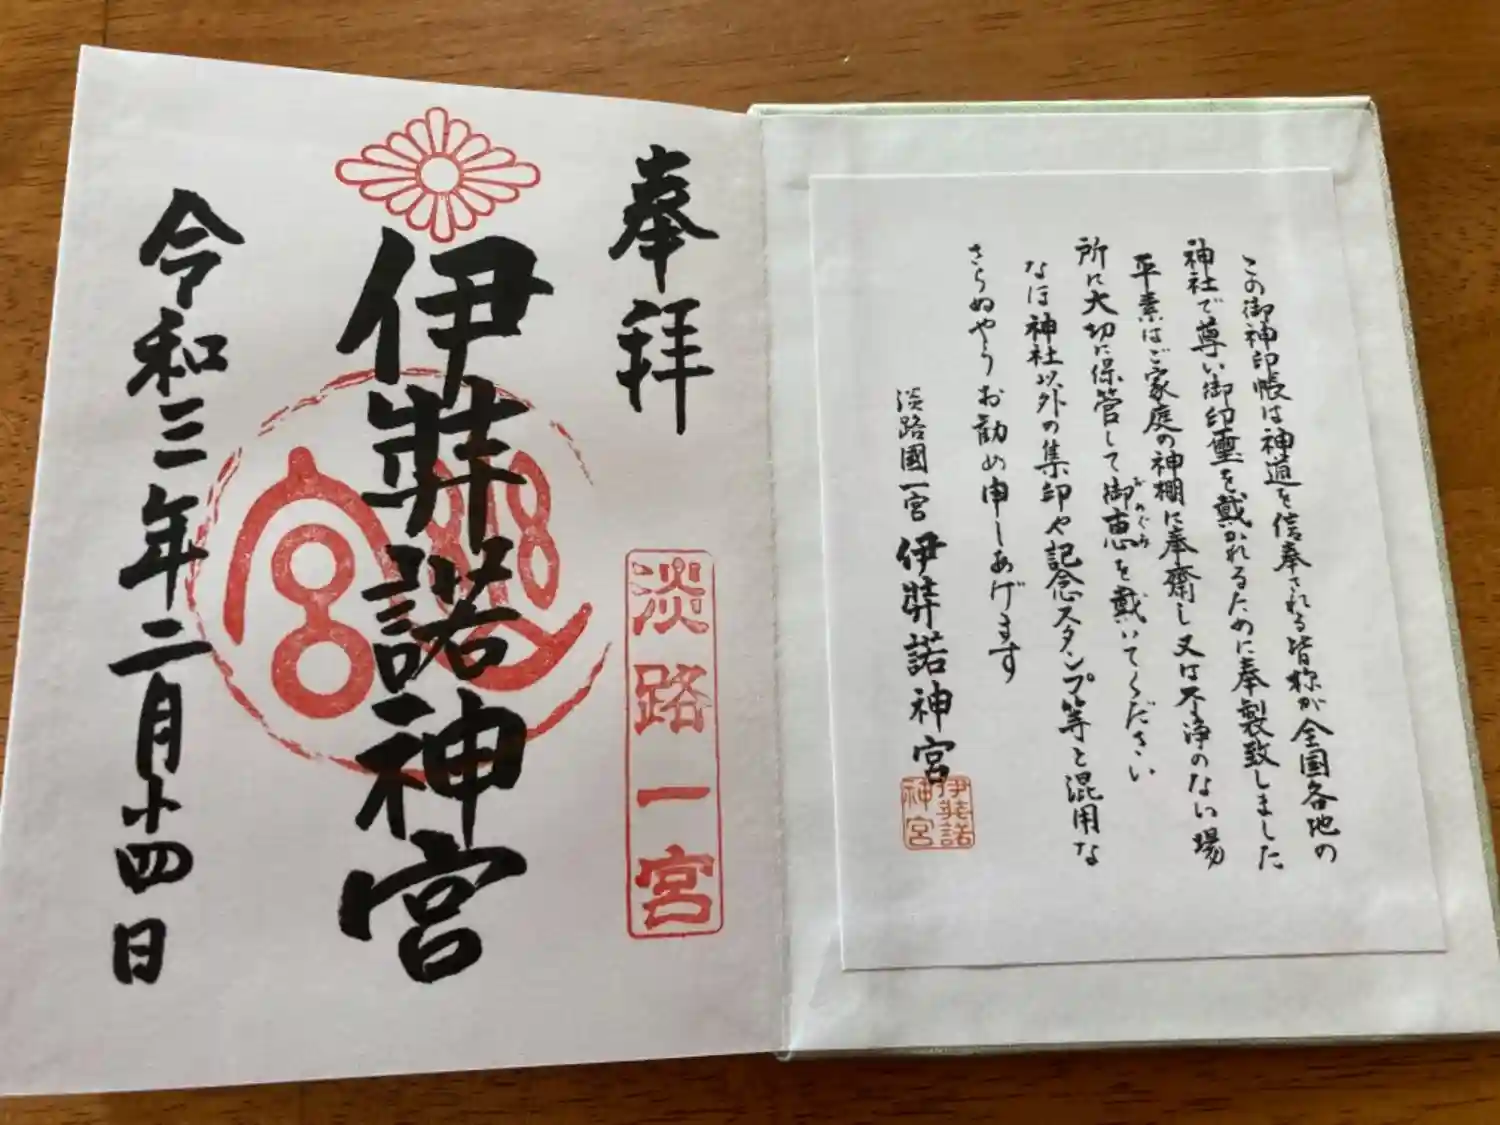 この御神印帳は神道を信奉される皆様が全国各地の
神社で尊い御印璽を戴かれるために奉製致しました
平素はご家庭の神棚に奉齋し又は不浄のない場
所に大切に保管して御恵を戴いてください
みめぐみ
なほ神社以外の集印や記念スタンプ等と混用な
さらぬやうお勧め申しあげます
淡路國一宮 伊弉諾神宮
伊弉諾
神宮
奉拝
淡路一宮
伊弉諾神宮
令和三年二月十四日